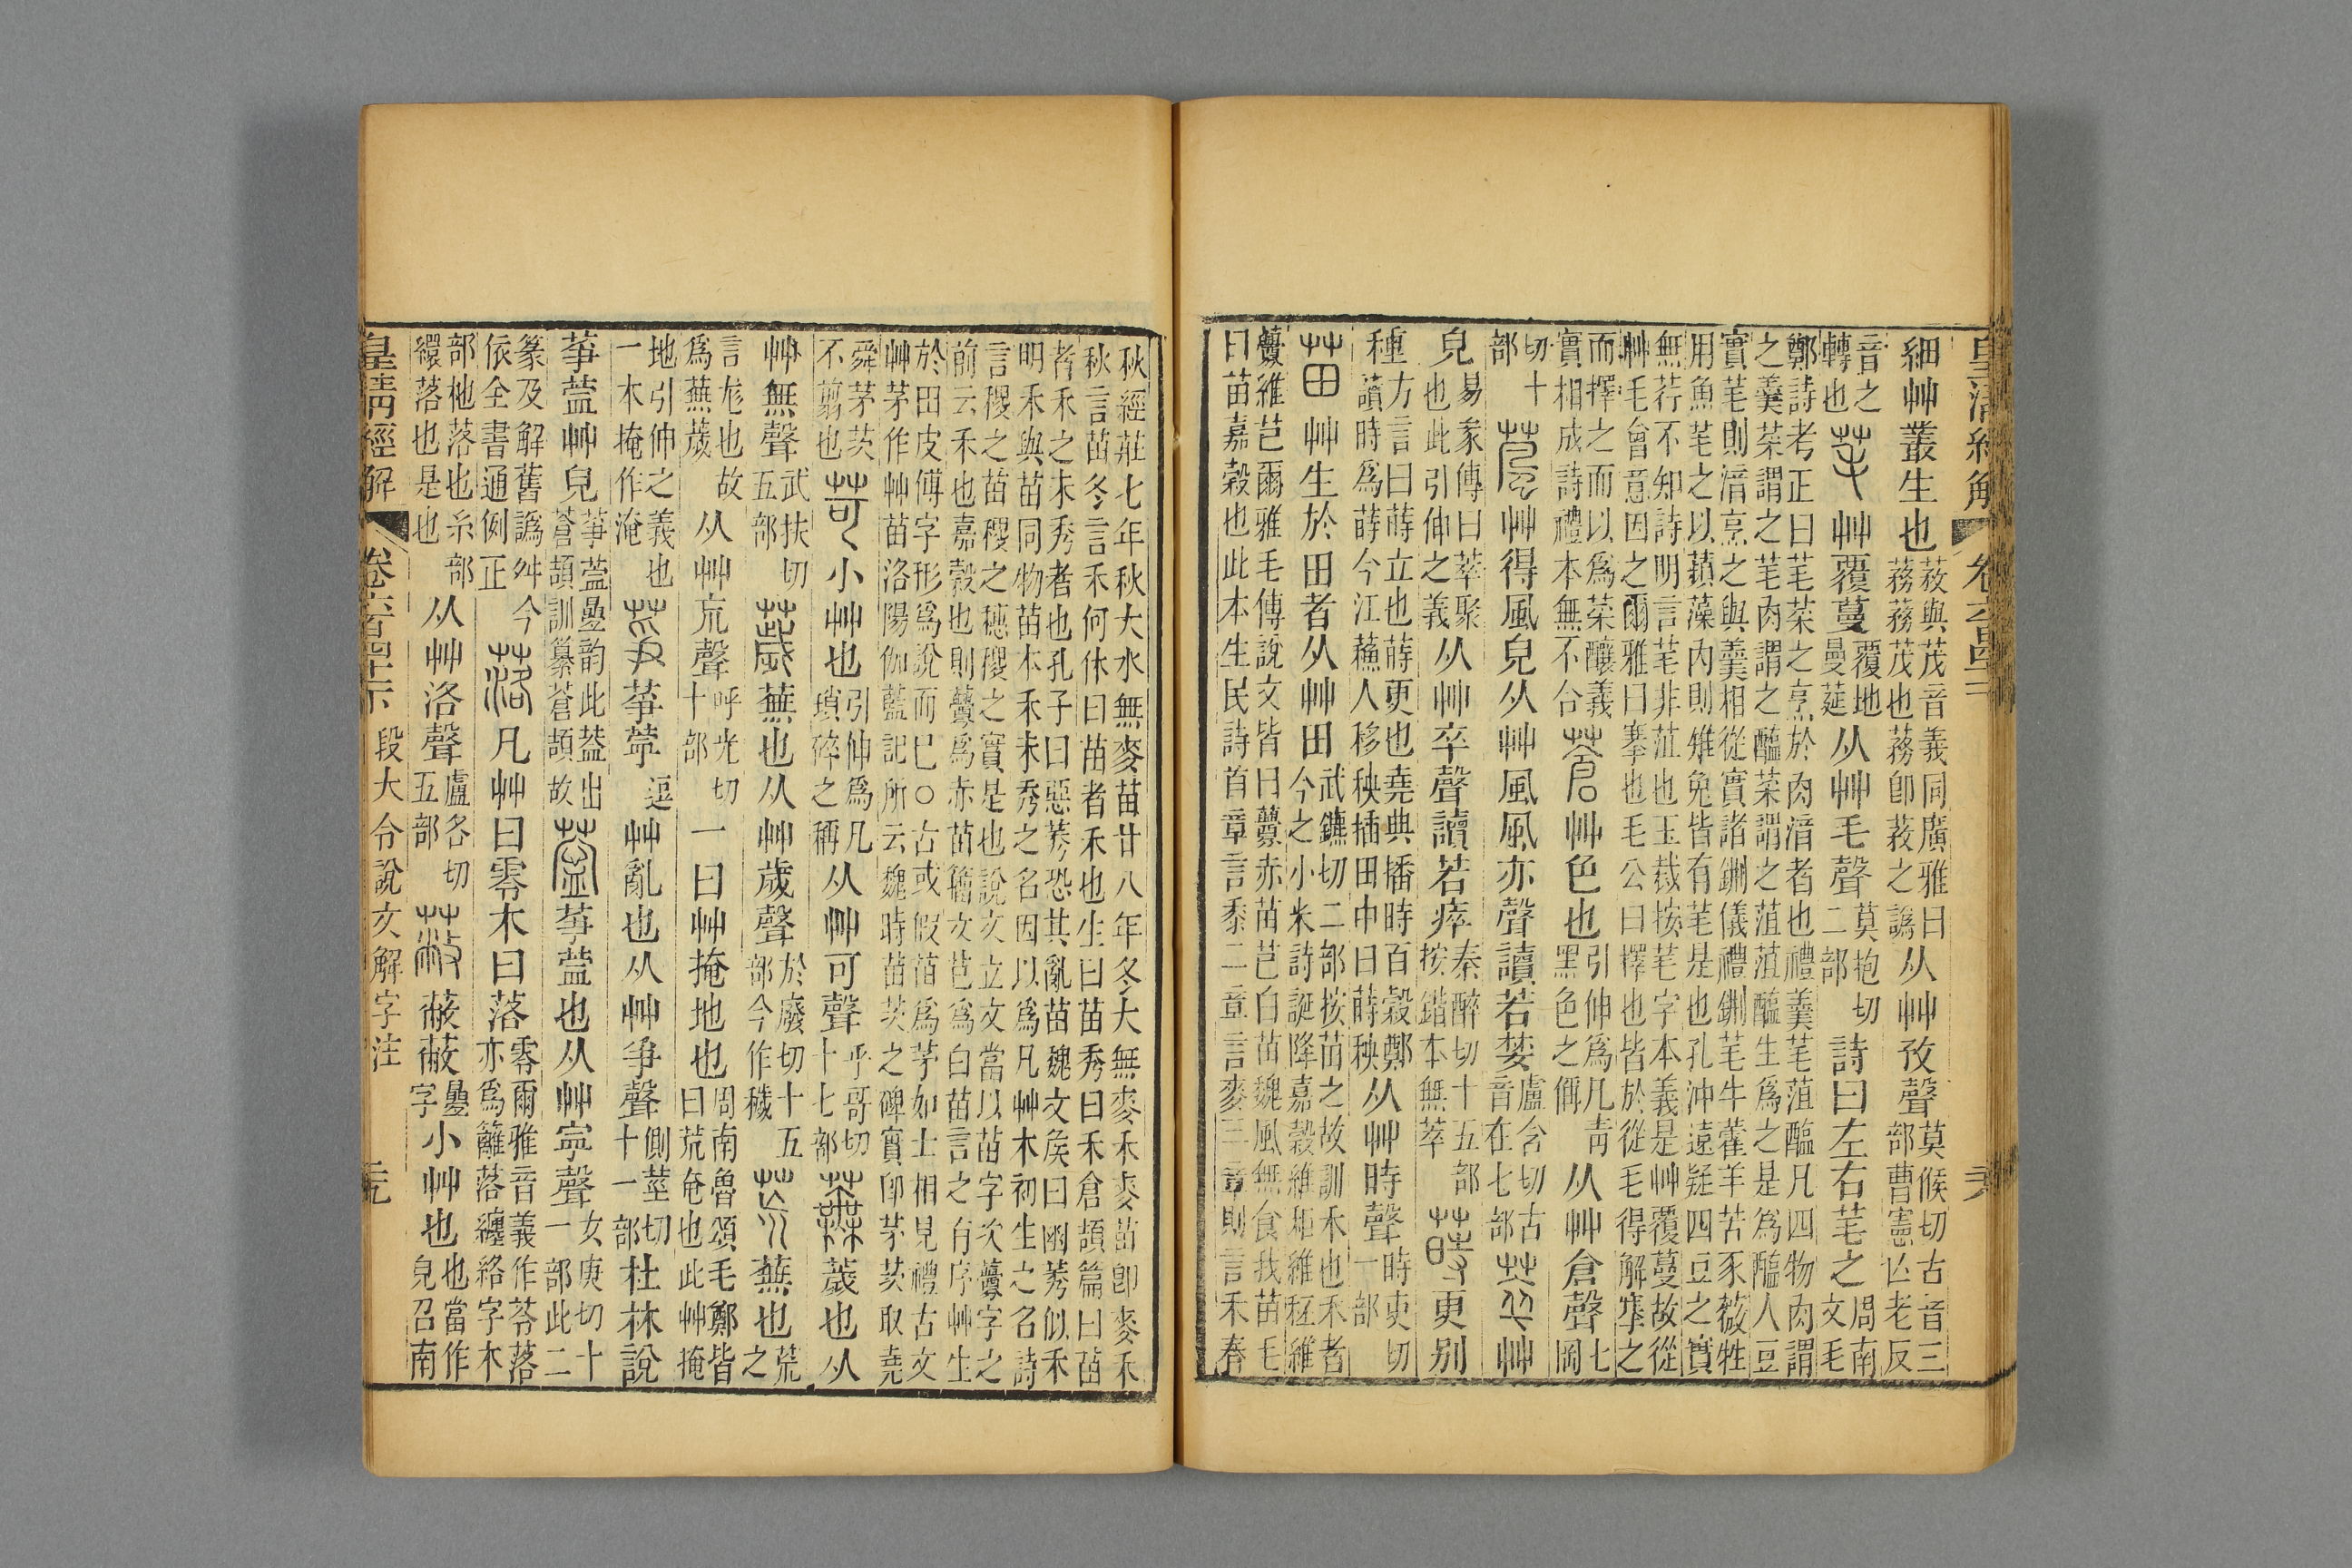 皇清經解 卷六百四十一下
細艸叢生也
與茂音義同廣雅曰
蓩蓩茂也蓩卽之譌
从艸孜聲
莫候切古音三
部曹憲亾老反
音之
轉也
芼艸覆蔓
覆地
曼莚
从艸毛聲
莫抱切
二部
詩曰左右芼之
周南
文毛
鄭詩考正曰芼菜之烹於肉湆者也禮羹芼菹醢凡四物肉謂
之羹菜謂之芼肉謂之醢菜謂之菹菹醢生爲之是爲醢人豆
實芼則湆烹之與羹相從實諸鉶儀禮鉶芼牛藿羊苦豕薇牲
用魚芼之以蘋藻內則雉兔皆有芼是也孔沖遠疑四豆之實
無荇不知詩明言芼非菹也玉裁按芼字本義是艸覆蔓故從
艸毛會意因之爾雅曰搴也毛公曰擇也皆於從毛得解搴之
而擇之而以爲菜釀義
實相成詩禮本無不合
蒼艸色也
引伸爲凡靑
黑色之偁
从艸倉聲
七
岡
切十
部
葻艸得風皃从艸風風亦聲讀若婪
盧含切古
音在七部
萃艸
皃
易彖傳曰萃聚
也此引伸之義
从艸卒聲讀若瘁
秦醉切十五部
按鍇本無萃
蒔更別
種
方言曰蒔立也蒔更也堯典播時百穀鄭
讀時爲蒔今江蘇人移秧插田中曰蒔秧
从艸時聲
時吏切
一部
苗艸生於田者从艸田
武鑣切二部按苗之故訓禾也禾者
今之小米詩誕降嘉穀維秬維秠維
虋維芑爾雅毛傳說文皆曰虋赤苗芑白苗魏風無食我苗毛
曰苗嘉穀也此本生民詩首章言黍二章言麥三章則言禾春
秋經莊七年秋大水無麥苗廿八年冬大無麥禾麥苗卽麥禾
秋言苗冬言禾何休曰苗者禾也生曰苗秀曰禾倉頡篇曰苗
者禾之未秀者也孔子曰惡莠恐其亂苗魏文矦曰幽莠似禾
明禾與苗同物苗本禾未秀之名因以爲凡艸木初生之名詩
言稷之苗稷之穗稷之實是也說文立文當以苗字次虋字之
前云禾也嘉穀也則虋爲赤苗籀文芑爲白苗言之有序艸生
於田皮傅字形爲說而巳○古或假苗爲茅如士相見禮古文
艸茅作艸苗洛陽伽藍記所云魏時苗茨之碑實卽茅茨取堯
舜茅茨
不翦也
苛小艸也
引伸爲凡
瑣碎之稱
从艸可聲
乎哥切
十七部
蕪薉也从
艸無聲
武扶切
五部
薉蕪也从艸歲聲
於廢切十五
部今作穢
荒蕪也
荒之
言尨也故
爲蕪薉
从艸㠩聲
呼光切
十部
一曰艸掩地也
周南魯頌毛鄭皆
曰荒奄也此艸掩
地引伸之義也
一本掩作淹
䔛䔛薴
逗
艸亂也从艸爭聲
側莖切
十一部
杜林說
䔛薴艸皃
䔛薴疊韵此葢出
蒼頡訓纂蒼頡故
薴䔛薴也从艸寍聲
女庚切十
一部此二
篆及解舊譌舛今
依全書通例正
落凡艸曰零木曰落
零爾雅音義作苓落
亦爲籬落纏絡字木
部杝落也糸部
繯落也是也
从艸洛聲
盧各切
五部
蔽蔽蔽
疊
字
小艸也
也當作
皃召南
皇清經解 卷六百四十一下 段大令說文解字注